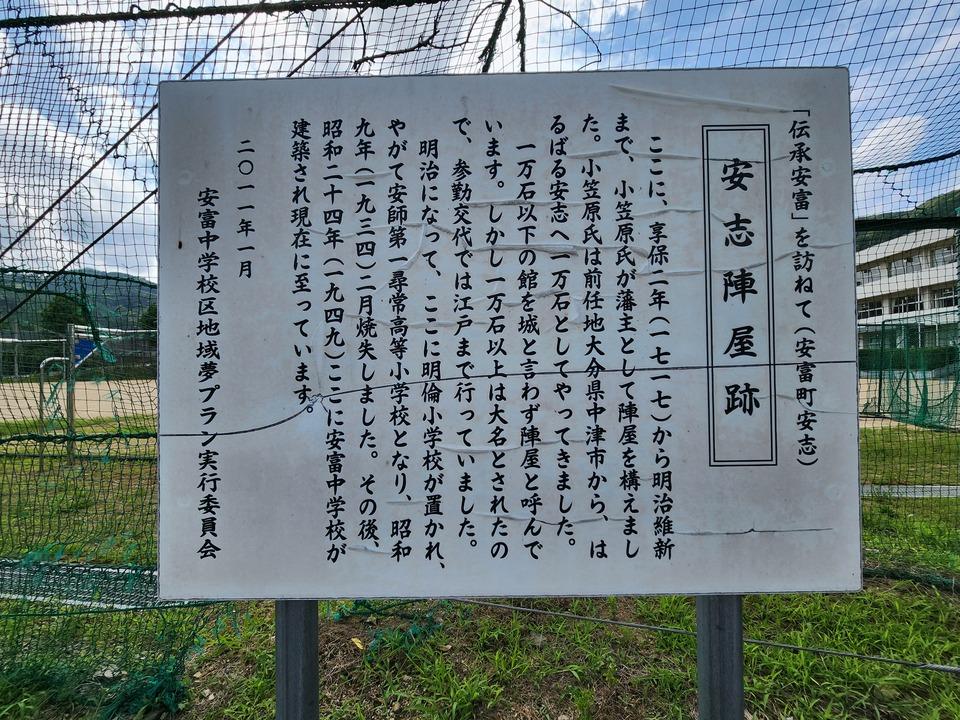 「伝承安富」を訪ねて（安富町安志）
安志陣屋跡
ここに、享保二年（一七一七）から明治維新
まで、小笠原氏が藩主として陣屋を構えまし
た。小笠原氏は前任地大分県中津市から、は
るばる安志へ一万石としてやってきました。
一万石以下の館を城と言わず陣屋と呼んで
います。しかし一万石以上は大名とされたの
で、参勤交代では江戸まで行っていました。
明治になって、ここに明倫小学校が置かれ、
やがて安師第一尋常高等小学校となり、昭和
九年（一九三四）二月焼失しました。その後、
昭和二十四年（一九四九）ここに安富中学校が
建築され現在に至っています。
二〇一一年一月
安富中学校区地域夢プラン実行委員会